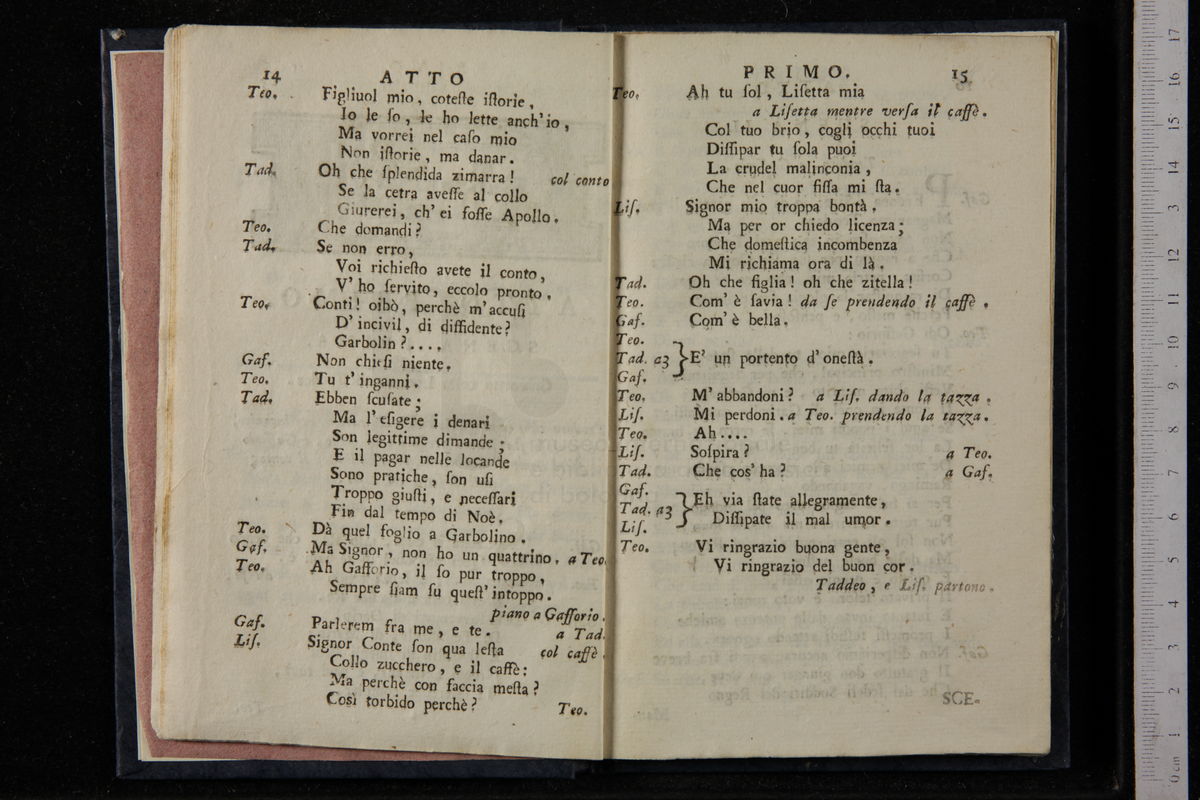 14 ATTO
Teo. Figliuol mio, coteste istorie,
Io le so, le ho lette anch'io,
Ma vorrei nel caso mio
Non istorie, ma danar.
Tad. Oh che splendida zimarra! col conto
Se la cetra avesse al collo
Giurerei, ch'ei fosse Apollo.
Teo. Che domandi?
Tad. Se non erro,
Voi richiesto avete il conto,
V'ho servito, eccolo pronto.
Teo. Conti! oibò, perchè m'accusi
D'incivil, di diffidente?
Garbolin?....
Gaf. Non chiesi niente.
Teo. Tu t'inganni.
Tad. Ebben scusate;
Ma l'esigere i denari
Son legittime dimande;
E il pagar nelle locande
Sono pratiche, son usi
Troppo giusti, e necessari
Fin dal tempo di Noè.
Teo. Dà quel foglio a Garbolino.
Gaf. Ma Signor, non ho un quattrino. a Teo.
Teo. Ah Gafforio, il so pur troppo,
Sempre siam su quest'intoppo.
piano a Gafforio.
Gaf. Parlerem fra me, e te. a Tad.
Lis. Signor Conte son qua lesta col caffè.
Collo zucchero, e il caffè:
Ma perchè con faccia mesta?
Così torbido perchè?
Teo.
PRIMO. 15
Teo. Ah tu sol, Lisetta mia
a Lisetta mentre versa il caffè.
Col tuo brio, cogli occhi tuoi
Dissipar tu sola puoi
La crudel malinconia,
Che nel cuor fissa mi sta.
Lis. Signor mio troppa bontà.
Ma per or chiedo licenza;
Che domestica incombenza
Mi richiama ora di là.
Tad. Oh che figlia! oh che zitella!
Teo. Com'è savia! da se prendendo il caffè.
Gaf. Com'è bella.
Teo.
Tad. a3 } E' un portento d'onestà.
Gaf.
Teo. M'abbandoni? a Lis. dando la tazza.
Lis. Mi perdoni. a Teo. prendendo la tazza.
Teo. Ah....
Lis. Sospira? a Teo.
Tad. Che cos'ha? a Gaf.
Gaf.
Tad. a3 } Eh via state allegramente,
Lis. Dissipate il mal umor.
Teo. Vi ringrazio buona gente,
Vi ringrazio del buon cor.
Taddeo, e Lis. partono.
SCE-